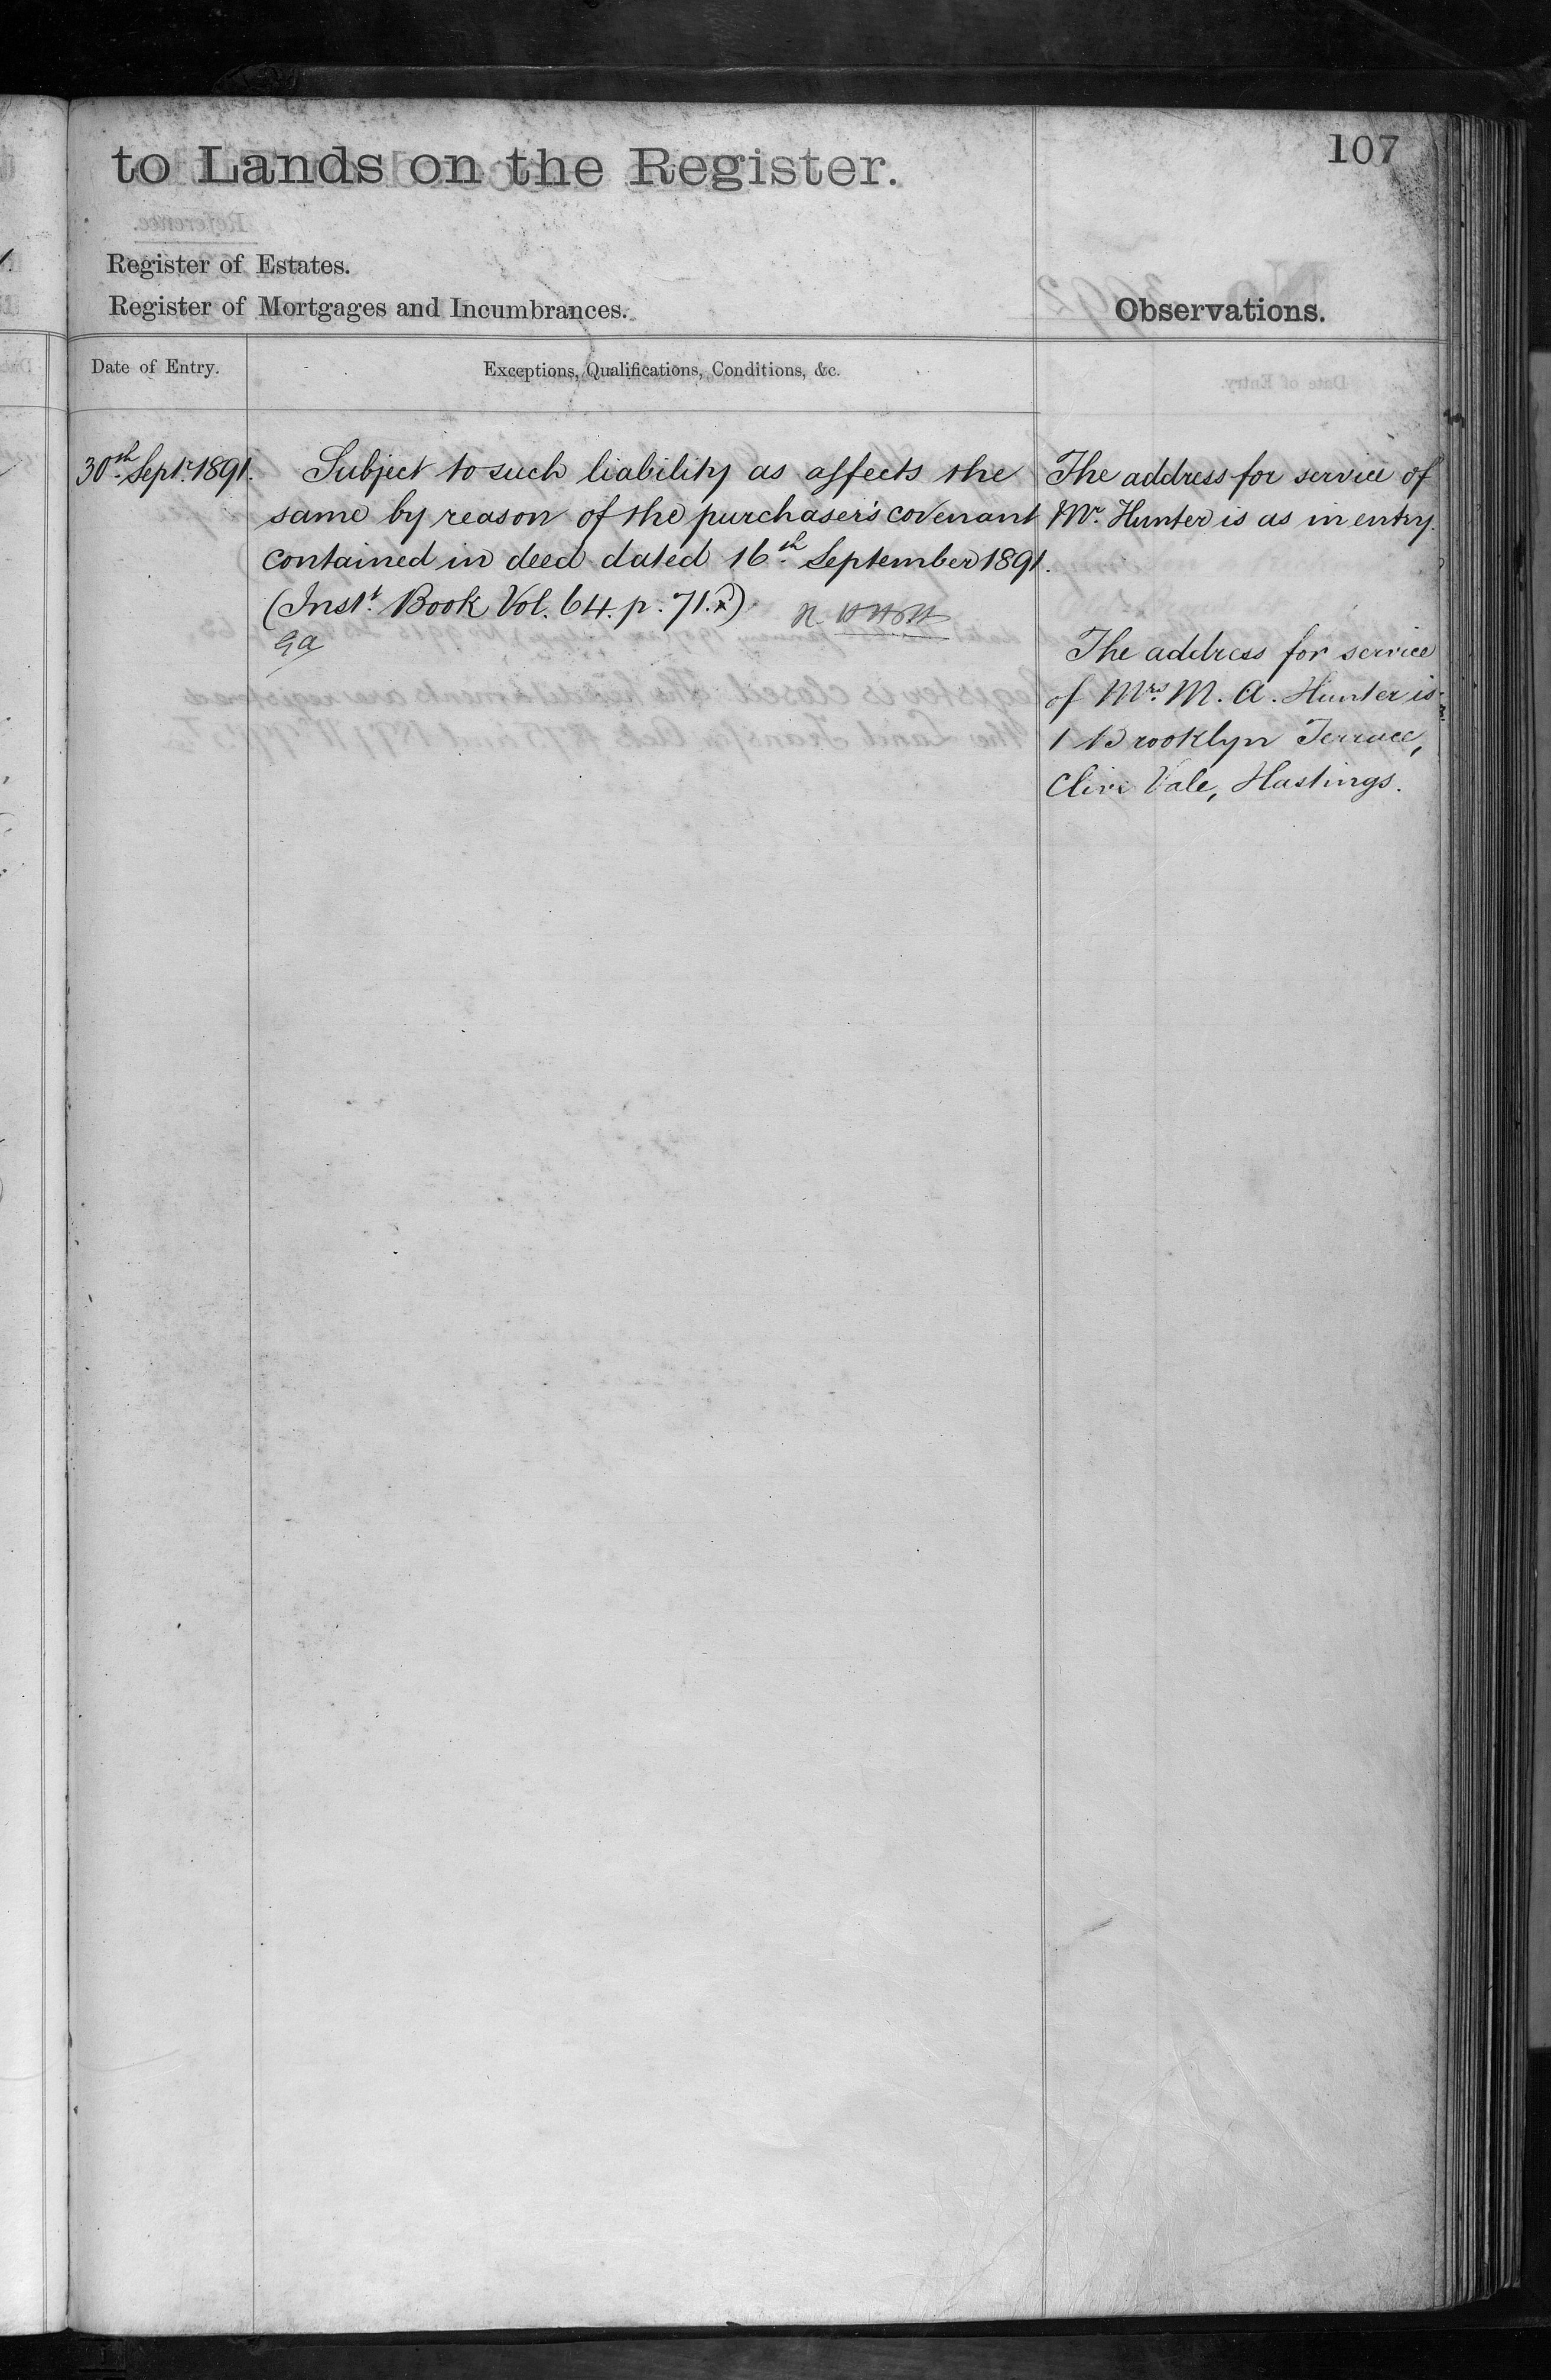 107
to Lands on the Register.
Register of Estates.
Register of Mortgages and Incumbrances.
Observations.
Date of Entry.
Exceptions, Qualifications, Conditions, &c.
30th Septr. 1891.
Subject to such liability as affects the
same by reason of the purchaser's covenant
contained in deed dated 16th September 1891.
(Instt. Book Vol. 64. p. 71.)
The address for service of
Mr. Hunter is as in entry.
The address for service
of Mrs. M. A. Hunter is
1 Brooklyn Terrace,
Clive Vale, Hastings.